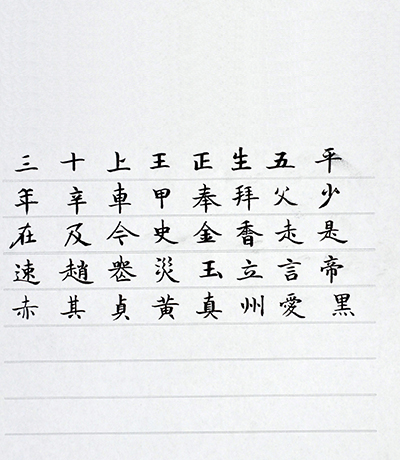 三十上王正生五平
年辛車甲奉拜父少
在及今史金香走是
速趙器災玉立言帝
赤其貞黃真州愛黑